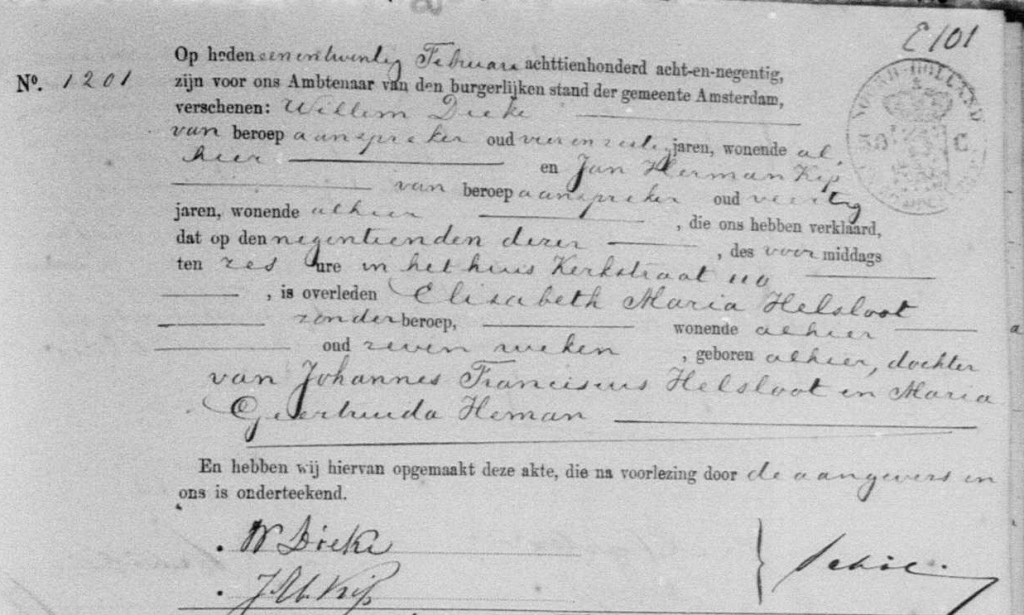 E101
Nº. 1201
Op heden een en twintig Februari achttienhonderd acht-en-negentig,
zijn voor ons Ambtenaar van den burgerlijken stand der gemeente Amsterdam,
verschenen: Willem Dieke
van beroep aanspreker oud vier en zestig jaren, wonende al-
hier en Jan Herman Kip
van beroep aanspreker oud veertig
jaren, wonende alhier, die ons hebben verklaard,
dat op den negentienden dezer, des voormiddags
ten zes ure in het huis Kerkstraat 110
, is overleden Elisabeth Maria Helsloot
zonder beroep, wonende alhier
oud zeven weken, geboren alhier, dochter
van Johannes Franciscus Helsloot en Maria
Geertruida Heman
En hebben wij hiervan opgemaakt deze akte, die na voorlezing door de aangevers en
ons is onderteekend.
W Dieke
J H Kip
NOORD-HOLLAND
50 C